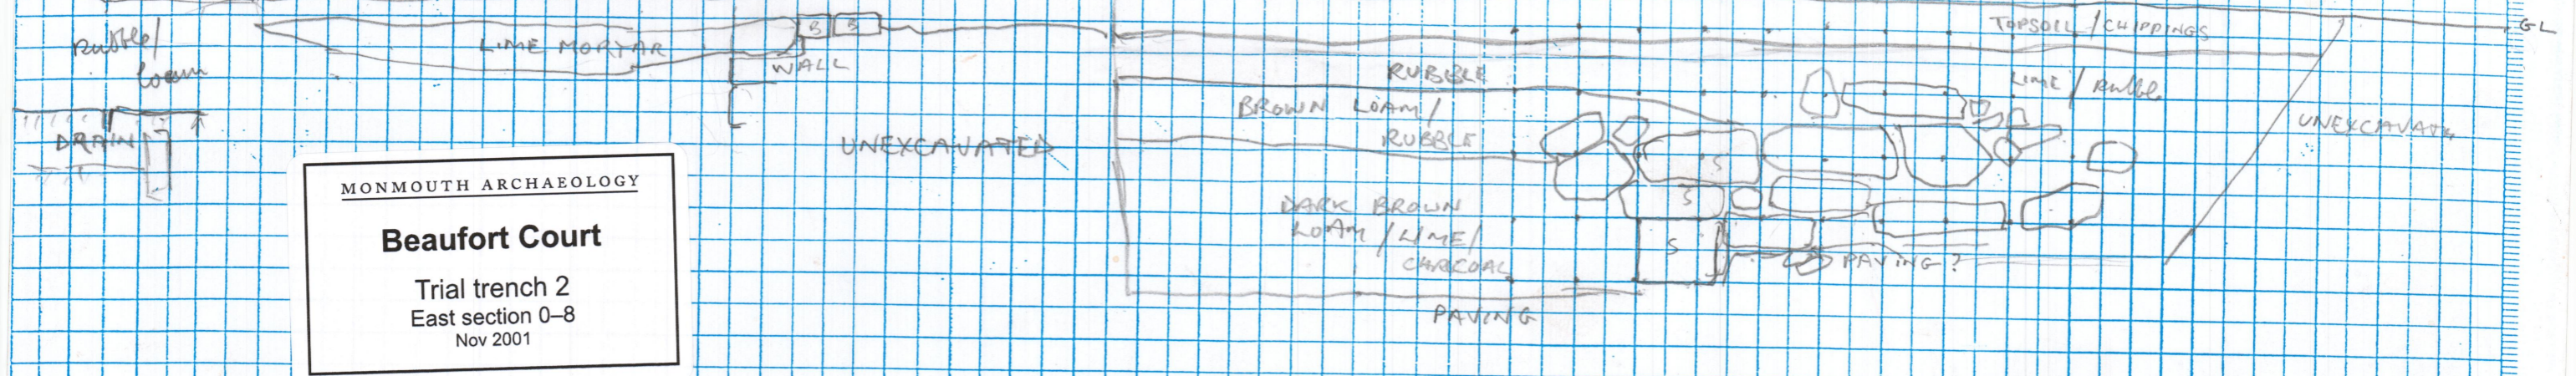 Rubble/
loam
LIME MORTAR
B B
WALL
DRAIN
UNEXCAVATED
TOPSOIL/CHIPPINGS
GL
RUBBLE
LIME / Rubble
BROWN LOAM/
RUBBLE
UNEXCAVATE
S
S
S
DARK BROWN
LOAM / LIME/
CHARCOAL
PAVING?
PAVING
MONMOUTH ARCHAEOLOGY
Beaufort Court
Trial trench 2
East section 0–8
Nov 2001